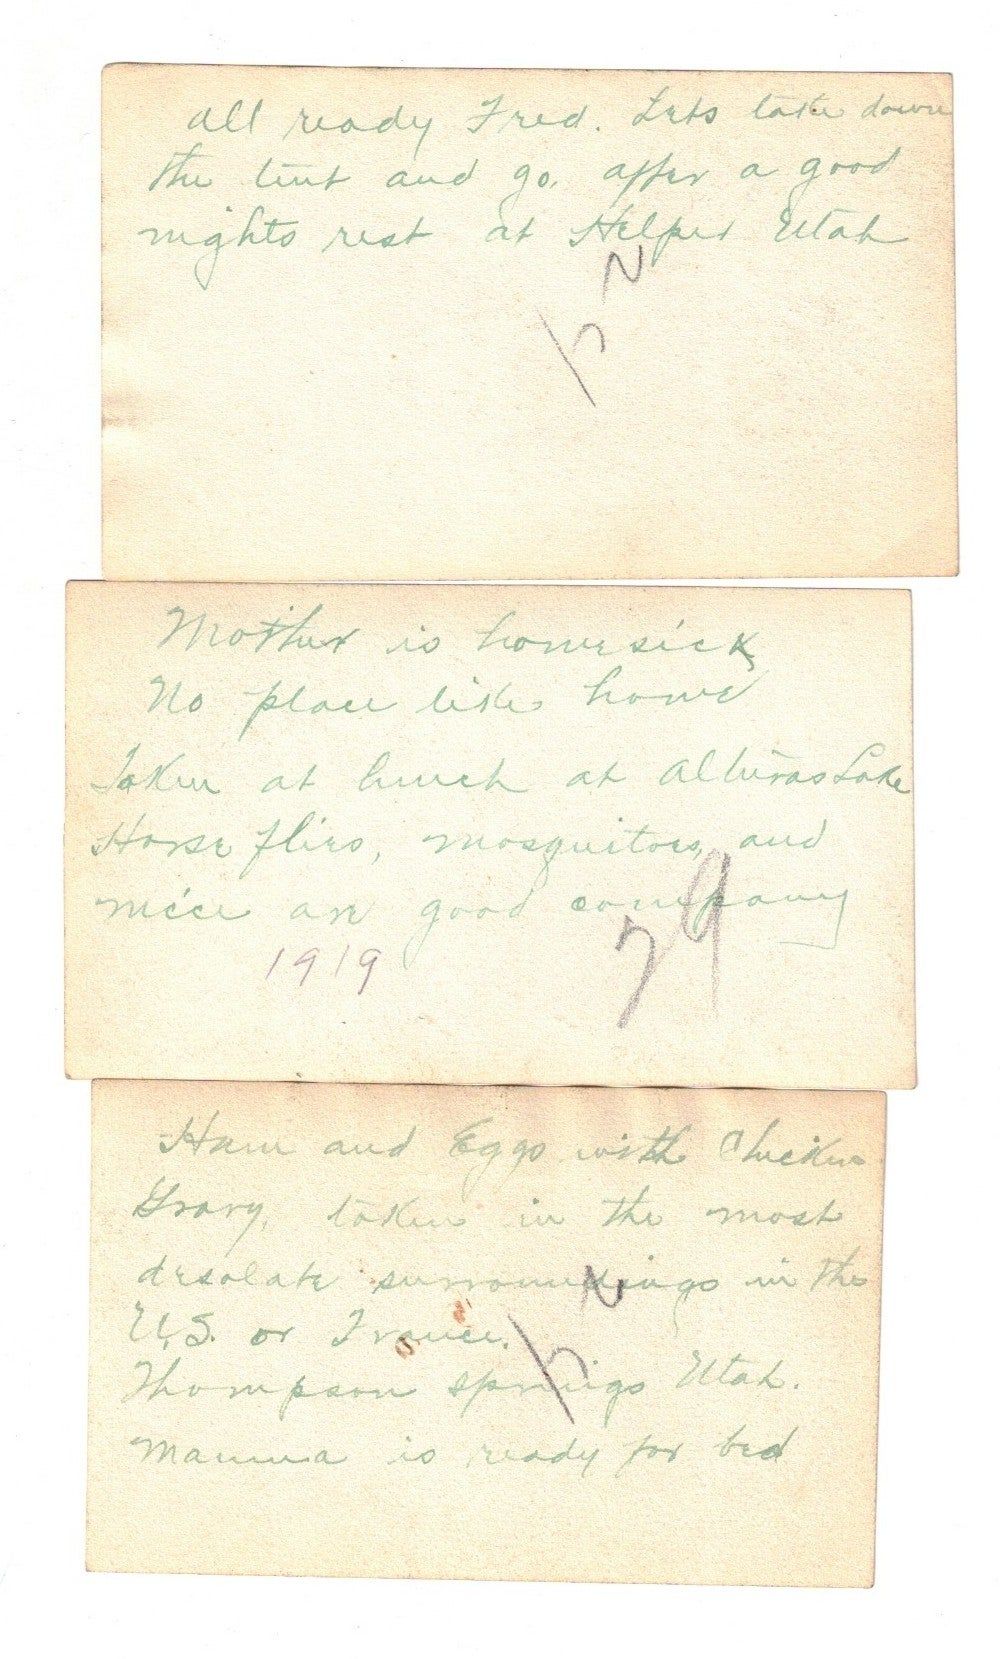 all ready Fred. Lets take down
the tent and go. after a good
nights rest at Helper Utah
Mother is homesick
No place like home
Taken at lunch at Alturas Lake
Horse flies, mosquitoes, and
mice are good company
1919
79
Ham and Eggs with Chicken
Gravy, taken in the most
desolate surroundings in the
U.S. or France.
Thompson Springs Utah.
Mamma is ready for bed